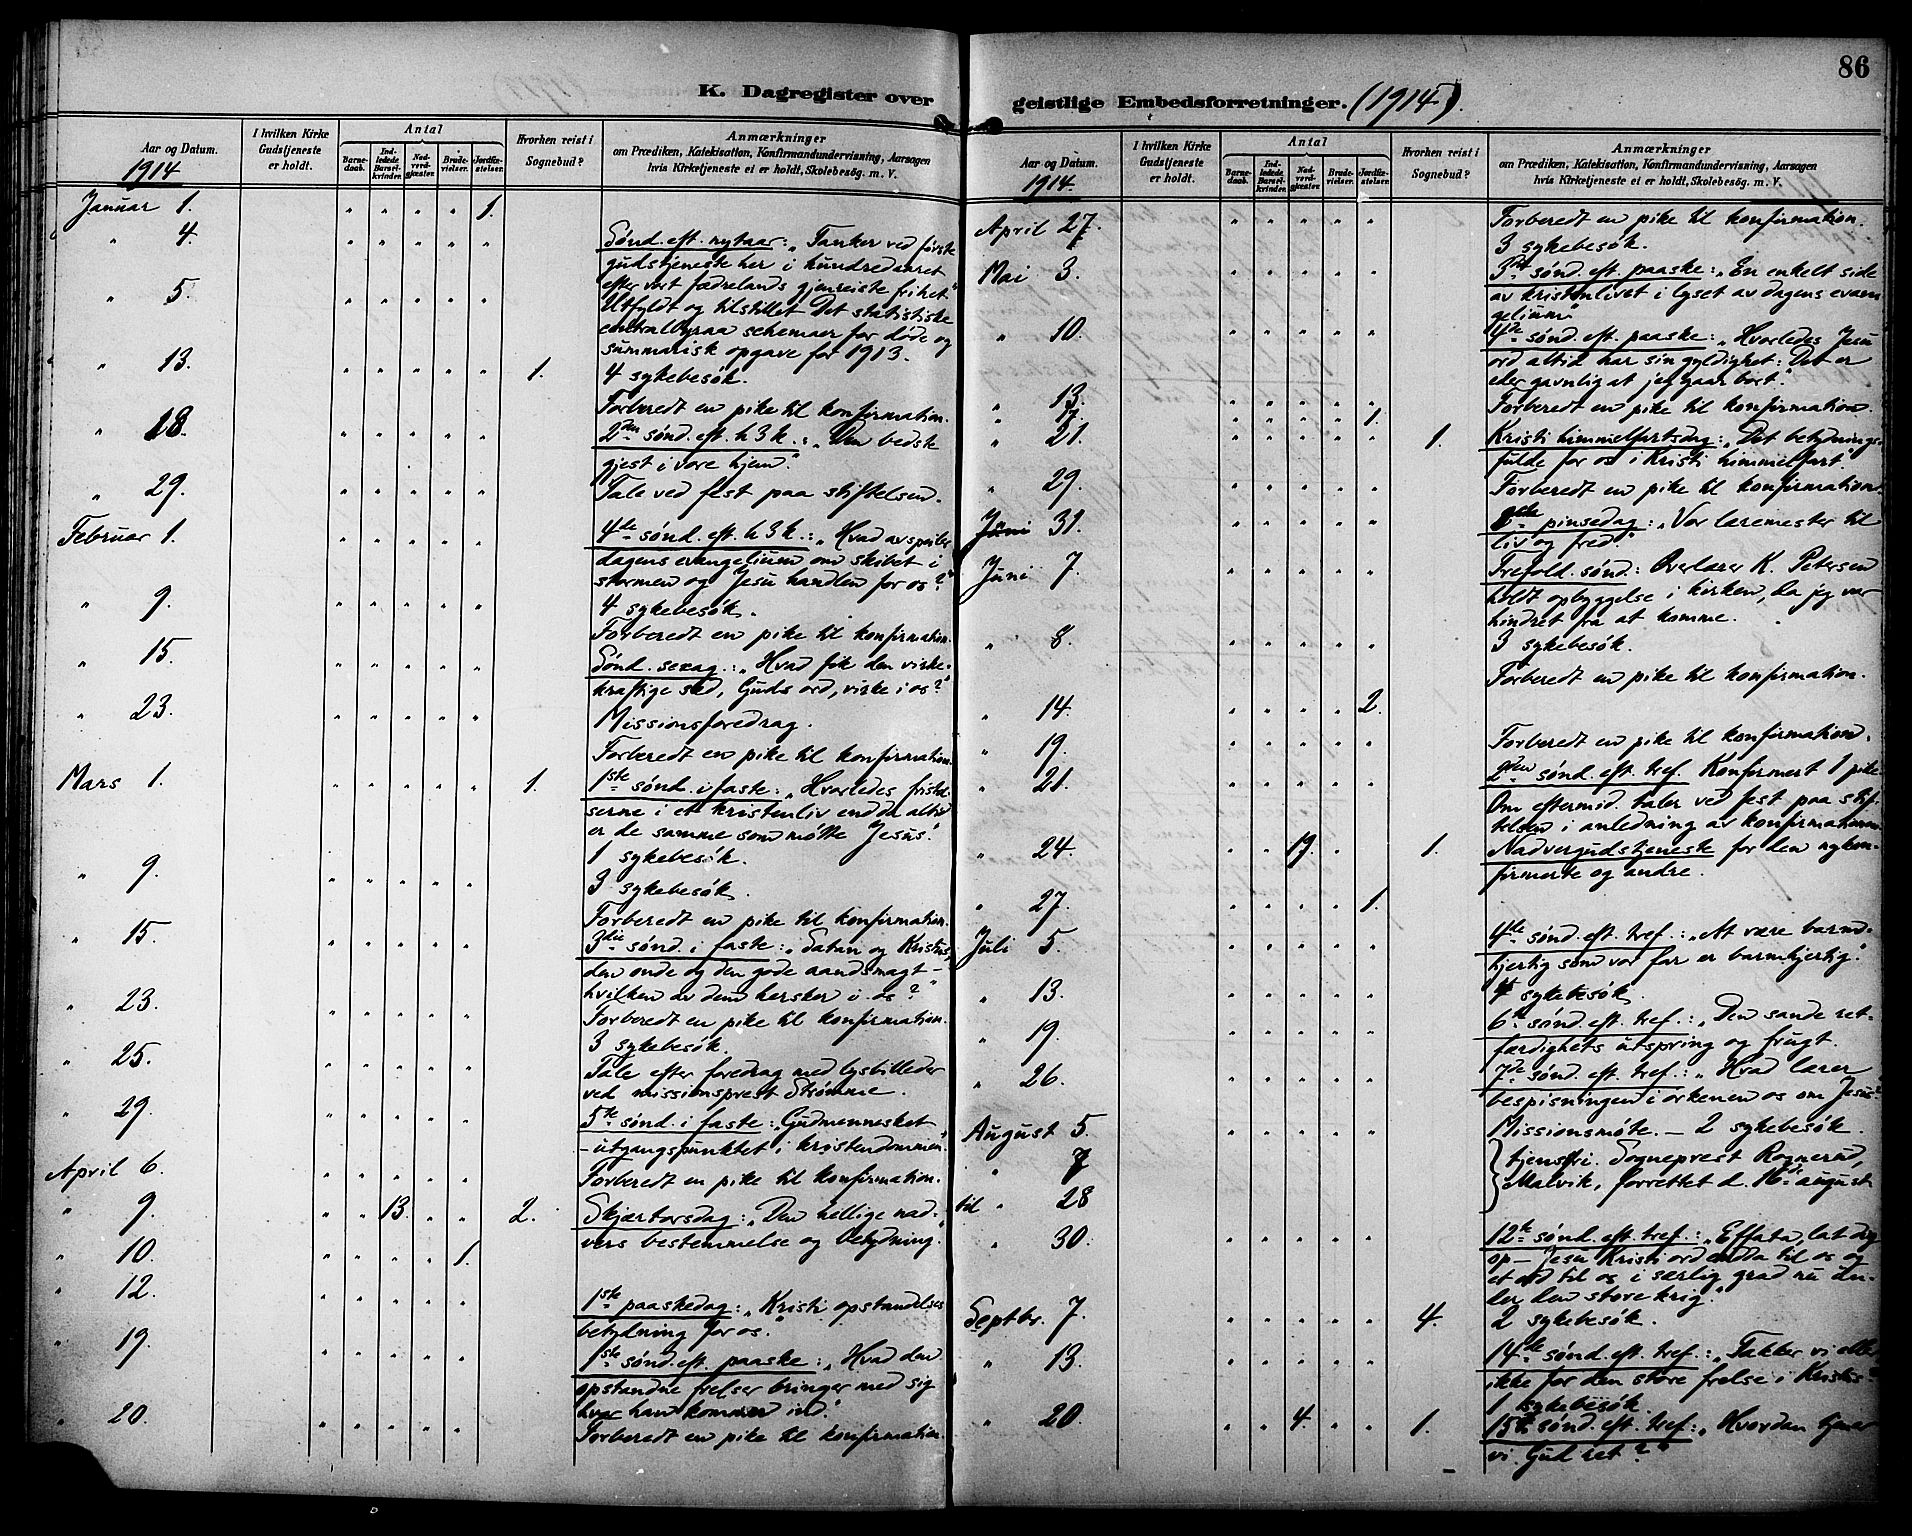 86
K. Dagregister over
geistlige Embedsforretninger. (1914).
Aar og Datum.
1914
I hvilken Kirke
Gudstjeneste
er holdt.
Antal
Barne-
daab.
Ind-
ledede
Barsel-
kvinder.
Nad-
verd-
gjæster.
Brude-
vielser.
Jordfæ-
stelser.
Hvorhen reist i
Sognebud?
Anmærkninger
om Prædiken, Katekisation, Konfirmandundervisning, Aarsagen
hvis Kirketjeneste ei er holdt, Skolebesøg. m. V.
Januar 1. " " " " 1.
" 4. " " " " " Sønd. eft. nytaar: „Tanker ved første
gudstjeneste her i hundredaaret
efter vort fædrelands gjenreiste frihet"
" 5. " " " " " Utfyldt og tilstillet Det statistiske
centralbyraa schemaer for døde og
summarisk opgave for 1913.
" 13. " " " " " 1. 4 sykebesøk.
Forberedt en pike til konfirmation.
" 18. " " " " " 2den sønd. eft. h 3 k.: „Den bedste
gjest i vore hjem."
" 29. " " " " " Tale ved fest paa stiftelsen.
Februar 1. " " " " " 4de sønd. eft. h 3 k.: „Hvad avspeiler
dagens evangelium om skibet i
stormen og Jesu handlen for os?"
" 9. " " " " " 4 sykebesøk.
Forberedt en pike til konfirmation.
" 15. " " " " " Sønd. sexag.: „Hvad fik den virke-
kraftige sæd, Guds ord, virke i os?"
" 23. " " " " " Missionsforedrag.
Forberedt en pike til konfirmation.
Mars 1. " " " " " 1. 1ste sønd. i faste: „Hvorledes fristel-
serne i et kristenliv endda altid
er de samme som møtte Jesus."
1 sykebesøk.
" 9. " " " " " 3 sykebesøk.
Forberedt en pike til konfirmation.
" 15. " " " " " 3die sønd. i faste: „Satan og Kristus,
den onde og den gode aandsmagt –
hvilken av dem hersker i os?"
" 23. " " " " " Forberedt en pike til konfirmation.
3 sykebesøk.
" 25. " " " " " Tale efter foredrag med lysbilleder
ved missionsprest Strømme.
" 29. " " " " " 5te sønd. i faste: „Gudmennesket
– utgangspunktet i kristendommen."
April 6. " " " " " Forberedt en pike til konfirmation.
" 9. " " 13. " " 2. Skjærtorsdag: „Den hellige nad-
vers bestemmelse og betydning."
" 10. " " " " 1.
" 12. " " " " " 1ste paaskedag: „Kristi opstandelses
betydning for os."
" 19. " " " " " 1ste sønd. eft. paaske: „Hvad den
opstandne frelser bringer med sig
hvor han kommer ind."
" 20. " " " " " Forberedt en pike til konfirmation.
Aar og Datum.
1914.
I hvilken Kirke
Gudstjeneste
er holdt.
Antal
Barne-
daab.
Ind-
ledede
Barsel-
kvinder.
Nad-
verd-
gjæster.
Brude-
vielser.
Jordfæ-
stelser.
Hvorhen reist i
Sognebud?
Anmærkninger
om Prædiken, Katekisation, Konfirmandundervisning, Aarsagen
hvis Kirketjeneste ei er holdt, Skolebesøg. m. V.
April 27. " " " " " Forberedt en pike til konfirmation.
3 sykebesøk.
Mai 3. " " " " " 3die sønd. eft. paaske: „En enkelt side
av kristenlivet i lyset av dagens evan-
gelium"
" 10. " " " " " 4de sønd. eft. paaske: „Hvorledes Jesu
ord altid har sin gyldighet: Det er
eder gavnlig at jeg gaar bort."
" 13. " " " " " Forberedt en pike til konfirmation.
" " " " " 1.
" 21. " " " " " 1. Kristi himmelfartsdag: „Det betydnings-
fulde for os i Kristi himmelfart."
" 29. " " " " " Forberedt en pike til konfirmation.
Juni 31. " " " " " pinsedag: „Vor læremester til
liv og fred."
Juni 7. " " " " " Trefold. sønd.: Overlærer K. Petersen
holdt opbyggelse i kirken, da jeg var
hindret fra at komme.
" 8. " " " " " 3 sykebesøk.
Forberedt en pike til konfirmation.
" 14. " " " " 2.
" 19. " " " " " Forberedt en pike til konfirmation.
" 21. " " " " " 2den sønd. eft. tref. Konfirmert 1 pike.
Om eftermid. taler ved fest paa stif-
telsen i anledning av konfirmationen.
" 24. " " 19. " " 1. Nadvergudstjeneste for den nykon-
firmerte og andre.
" 27. " " " " 1.
Juli 5. " " " " " 4de sønd. eft. tref.: „At være barm-
hjertig som vor far er barmhjertig."
" 13. " " " " " 4 sykebesøk.
" 19. " " " " " 6te sønd. eft. tref.: „Den sande ret-
færdighets utspring og frugt.
" 26. " " " " " 7de sønd. eft. tref.: „Hvad lærer
bespisningen i ørkenen os om Jesus?"
August 5. " " " " " Missionsmøte. – 2 sykebesøk.
" 7 tjenstfri. Sogneprest Rognerud,
Malvik, forrettet d. 16de august
til " 28
" 30. " " " " " 12te sønd. eft. tref.: „Effata, lat dig
op – Jesu Kristi ord endda til os og
et ord til os i særlig grad nu un-
der den store krig."
Septbr. 7. " " " " " 4. 2 sykebesøk.
" 13. " " " " " 14de sønd. eft. tref.: „Takker vi eller
ikke for den store frelse i Kristus?"
1 sykebesøk.
" 20. " " 4. " " 1. 15de sønd. eft. tref.: „Hvordan tjener
vi Gud ret?"